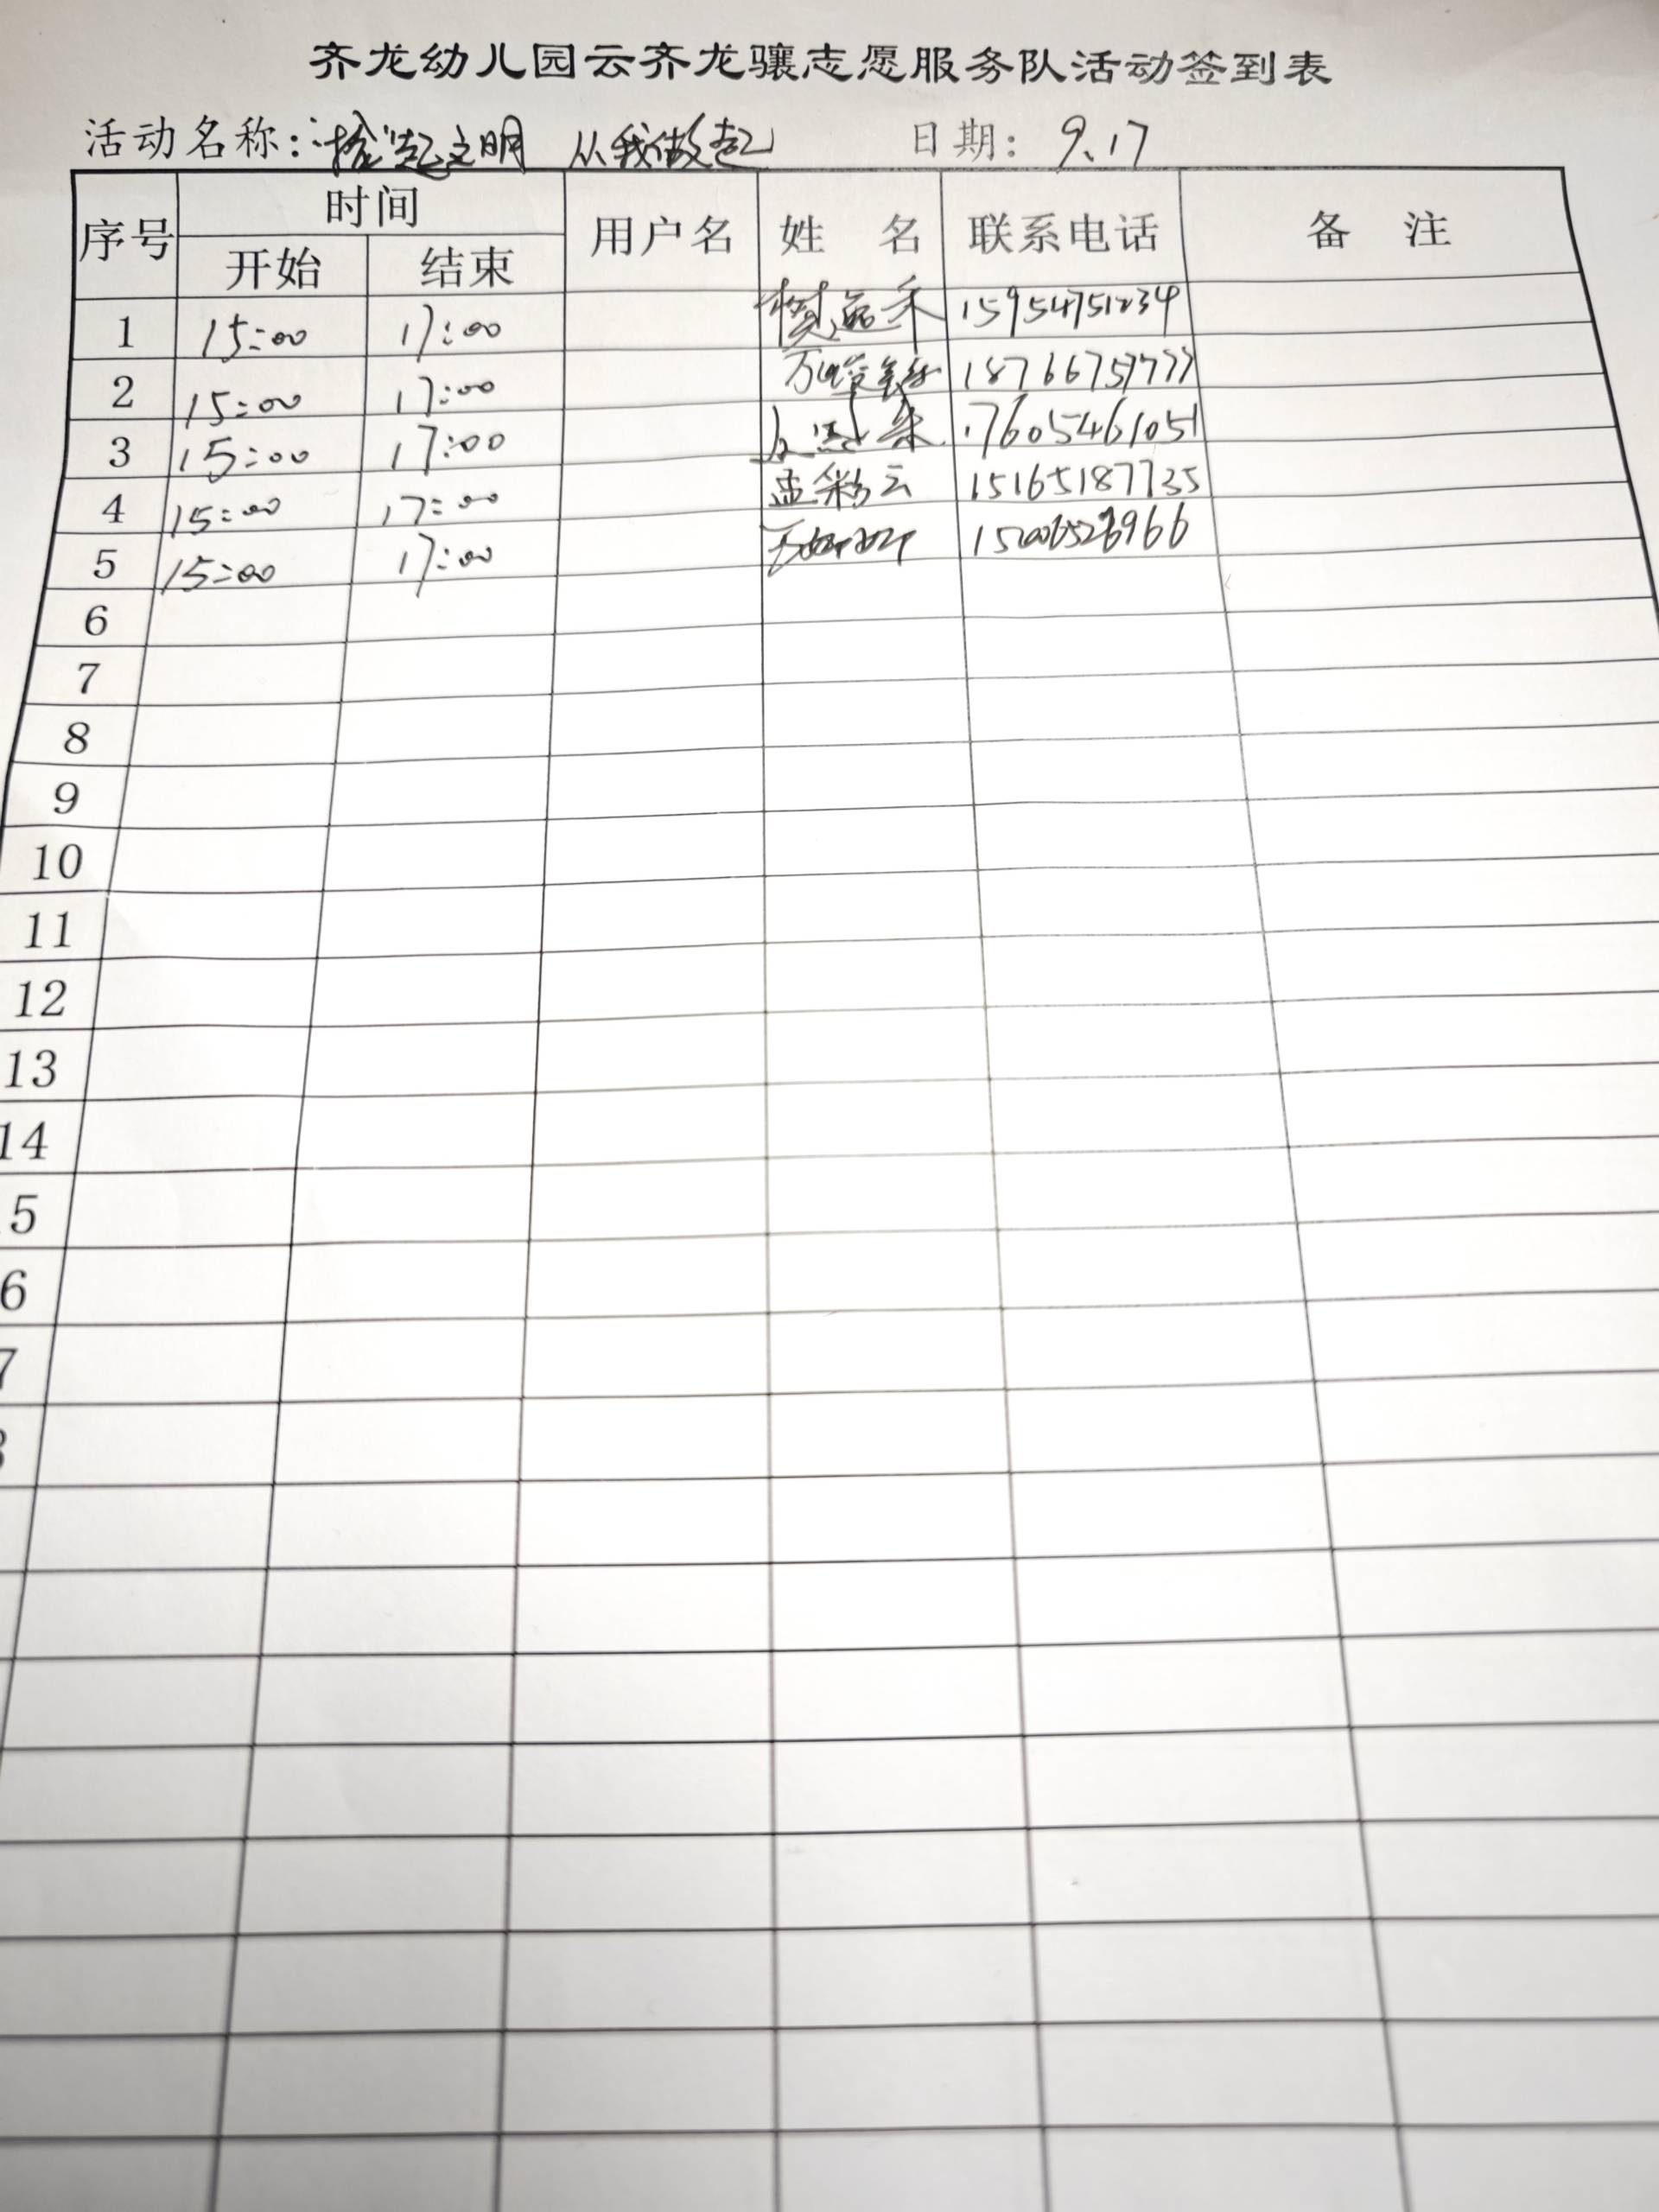 齐龙幼儿园云齐龙骧志愿服务队活动签到表
活动名称: 拾起文明 从我做起 日期: 9.17
序号 时间 用户名 姓名 联系电话 备注
开始 结束
1 15:00 17:00 15954751234
2 15:00 17:00 18766757777
3 15:00 17:00 17605461051
4 15:00 17:00 孟彩云 15165187735
5 15:00 17:00
6
7
8
9
10
11
12
13
14
5
6
7